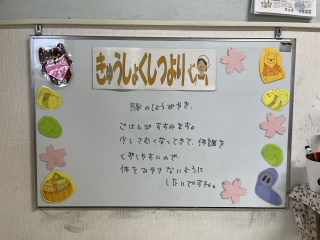 きゅうしょくしつより
豚のしょうがやき、
ごはんが すすみます。
少しさむくなってきて、体調を
くずしやすいので
体をひやさないように
したいですね。